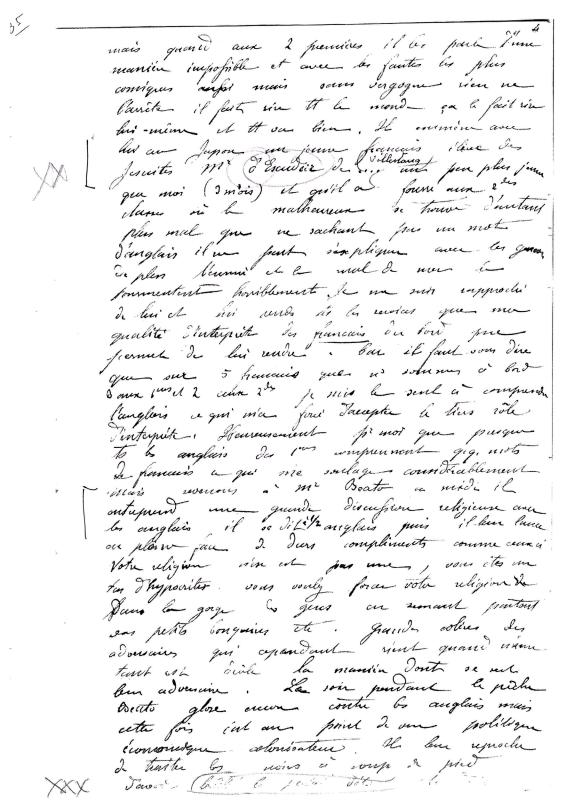 35
4
mais quand aux 2 premières il les parle d'une
manière impossible et avec les fautes les plus
comiques mais sans vergogne rien ne
l'arrête il fait rire tt le monde ça le fait rire
lui-même et tt va bien. Il emmène avec
lui au Japon un jeune français élève des
XX Jesuites Mr d'Escudié de Villestang un peu plus jeune
que moi (3 mois) et qu'il a fourré aux 2des
classes où le malheureux se trouve d'autant
plus mal que ne sachant pas un mot
d'anglais il ne peut s'expliquer avec les
de plus l'ennui et le mal de mer le
tourmentent horriblement. Je me suis rapproché
de lui et lui rends ts les services que ma
qualité d'interprète des français du bord me
permet de lui rendre. Car il faut vous dire
que sur 5 français que ns sommes à bord
3 aux 1ères et 2 aux 2des je suis le seul à comprendre
l'anglais ce qui m'a forcé d'accepter le rôle
d'interprète. Heureusement pr moi que presque
ts les anglais des 1ères comprennent qq. mots
de français ce qui me soulage considérablement
mais revenons à Mr Beato ce midi il
entreprend une grande discussion religieuse avec
les anglais il se dit 1/2 anglais puis il leur lance
en pleine face de durs compliments comme ceux ci
Votre religion n'en est pas une, vous êtes un
tas d'hypocrites. vous voulez forcer votre religion
Dans la gorge des gens en semant partout
vos petits etc. Grandes colères des
adversaires qui cependant rient quand même
tant est drôle la manière dont se sert
leur adversaire. Le soir pendant la pêche
Beato glose encore contre les anglais mais
cette fois c'est au point de vue politique
économique colonisateur. Il leur reproche
de traiter les noirs à coup de pied
XXX